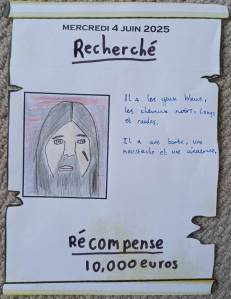 MERCREDI 4 JUIN 2025
Recherché
Il a les yeux bleus,
les cheveux noirs, longs
et raides.
Il a une barbe, une
moustache et une cicatrice.
Récompense
10,000 euros